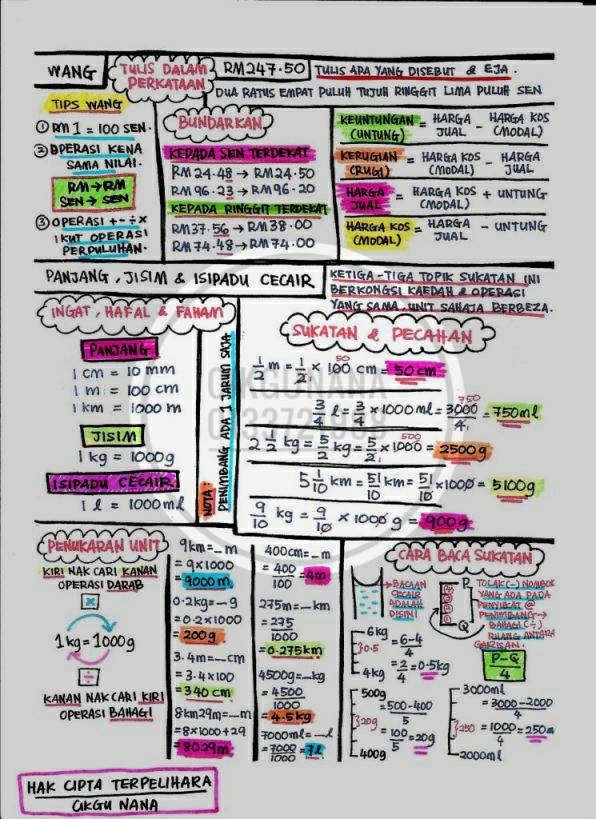 WANG
TULIS DALAM
PERKATAAN
RM247.50
TULIS APA YANG DISEBUT & EJA.
DUA RATUS EMPAT PULUH TUJUH RINGGIT LIMA PULUH SEN
TIPS WANG
① RM 1 = 100 SEN.
② OPERASI KENA
SAMA NILAI.
RM → RM
SEN → SEN
③ OPERASI + - ÷ ×
IKUT OPERASI
PERPULUHAN.
BUNDARKAN
KEPADA SEN TERDEKAT
RM24.48 → RM24.50
RM96.23 → RM96.20
KEPADA RINGGIT TERDEKAT
RM37.56 → RM38.00
RM74.48 → RM74.00
KEUNTUNGAN (UNTUNG) = HARGA JUAL - HARGA KOS (MODAL)
KERUGIAN (RUGI) = HARGA KOS (MODAL) - HARGA JUAL
HARGA JUAL = HARGA KOS (MODAL) + UNTUNG
HARGA KOS (MODAL) = HARGA JUAL - UNTUNG
PANJANG, JISIM & ISIPADU CECAIR
KETIGA-TIGA TOPIK SUKATAN INI
BERKONGSI KAEDAH & OPERASI
YANG SAMA, UNIT SAHAJA BERBEZA.
INGAT, HAFAL & FAHAM
PANJANG
1 cm = 10 mm
1 m = 100 cm
1 km = 1000 m
JISIM
1 kg = 1000g
ISIPADU CECAIR
1 l = 1000 ml
NOTA:
PENIMBANG ADA 1 JARUM SAJA
SUKATAN & PECAHAN
1/2 m = 1/2 × 100 cm = 50 cm
50
3/4 l = 3/4 × 1000 ml = 3000/4 = 750 ml
750
2 1/2 kg = 5/2 kg = 5/2 × 1000 = 2500 g
500
5 1/10 km = 51/10 km = 51/10 × 1000 = 5100 g
9/10 kg = 9/10 × 1000 g = 900g
PENUKARAN UNIT
KIRI NAK CARI KANAN
OPERASI DARAB
×
1 kg = 1000g
÷
KANAN NAK CARI KIRI
OPERASI BAHAGI
9km = _ m
= 9 × 1000
= 9000 m
0.2kg = _ g
= 0.2 × 1000
= 200 g
3.4m = _ cm
= 3.4 × 100
= 340 cm
8km29m = _ m
= 8 × 1000 + 29
= 8029m
400cm = _ m
= 400/100 = 4m
275m = _ km
= 275/1000
= 0.275km
4500g = _ kg
= 4500/1000
= 4.5 kg
7000ml = _ l
= 7000/1000 = 7l
CARA BACA SUKATAN
BACAAN
CECAIR
ADALAH
DISINI
P
Q
TOLAK(-) NOMBOR
YANG ADA PADA
PENYUKAT @
PENIMBANG →
BAHAGI (÷)
BILANG ANTARA
GARISAN.
P-Q/4
6kg
0.5
4kg
= 6-4/4
= 2/4 = 0.5kg
500g
20g
400g
= 500-400/5
= 100/5 = 20g
3000ml
250
2000ml
= 3000-2000/4
= 1000/4 = 250m
CIKGUNANA
HAK CIPTA TERPELIHARA
CIKGU NANA